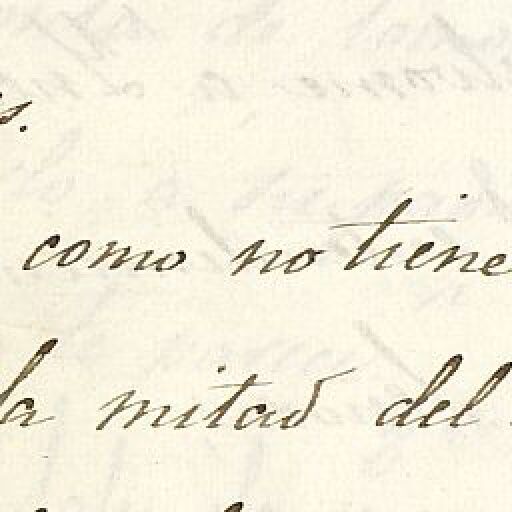 s.
como no tiene
la mitad del